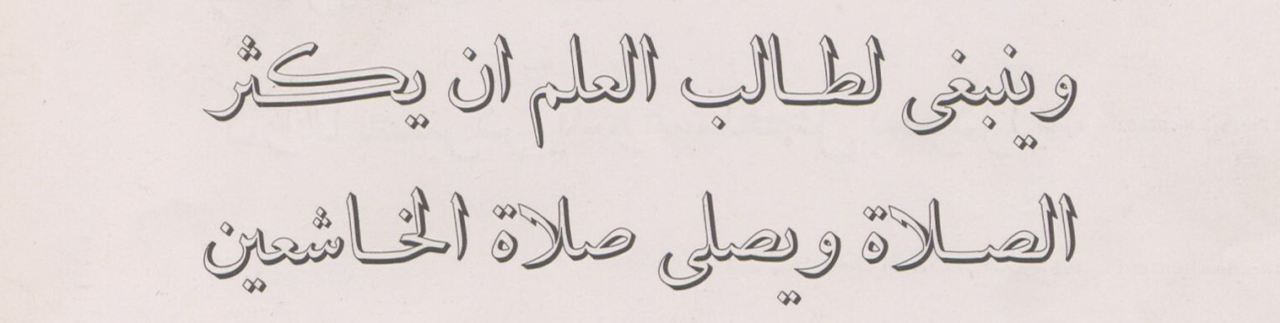 وينبغى لطالب العلم ان يكثر
الصلاة ويصلى صلاة الخاشعين